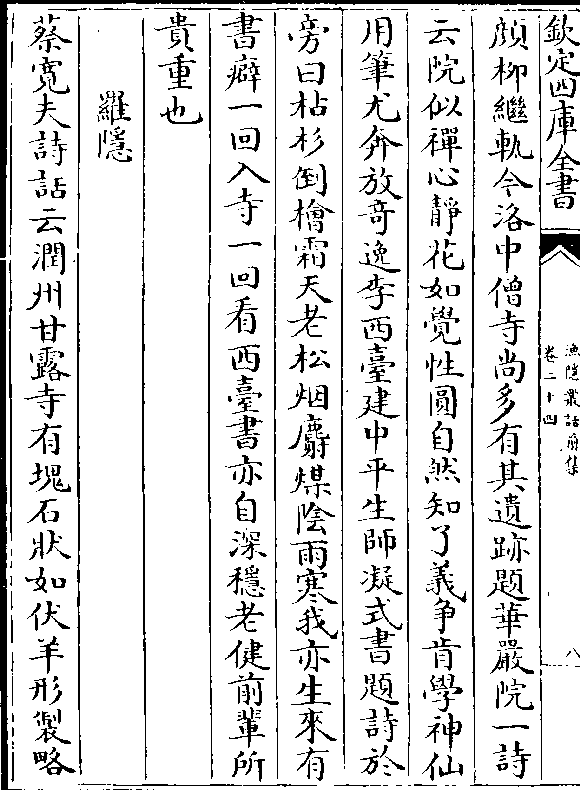 欽定四庫全書
漁隱叢話前集
卷二十四
八
顔柳繼軌今洛中僧寺尚多有其遺跡題華嚴院一詩
云院似禪心靜花如覺性圓自然知了義争肯學神仙
用筆尤奔放竒逸李西臺建中平生師凝式書題詩於
旁曰枯杉倒檜霜天老松烟麝煤陰雨寒我亦生來有
書癖一回入寺一回看西臺書亦自深穩老健前輩所
貴重也
羅隱
蔡寛夫詩話云潤州甘露寺有塊石狀如伏羊形製略